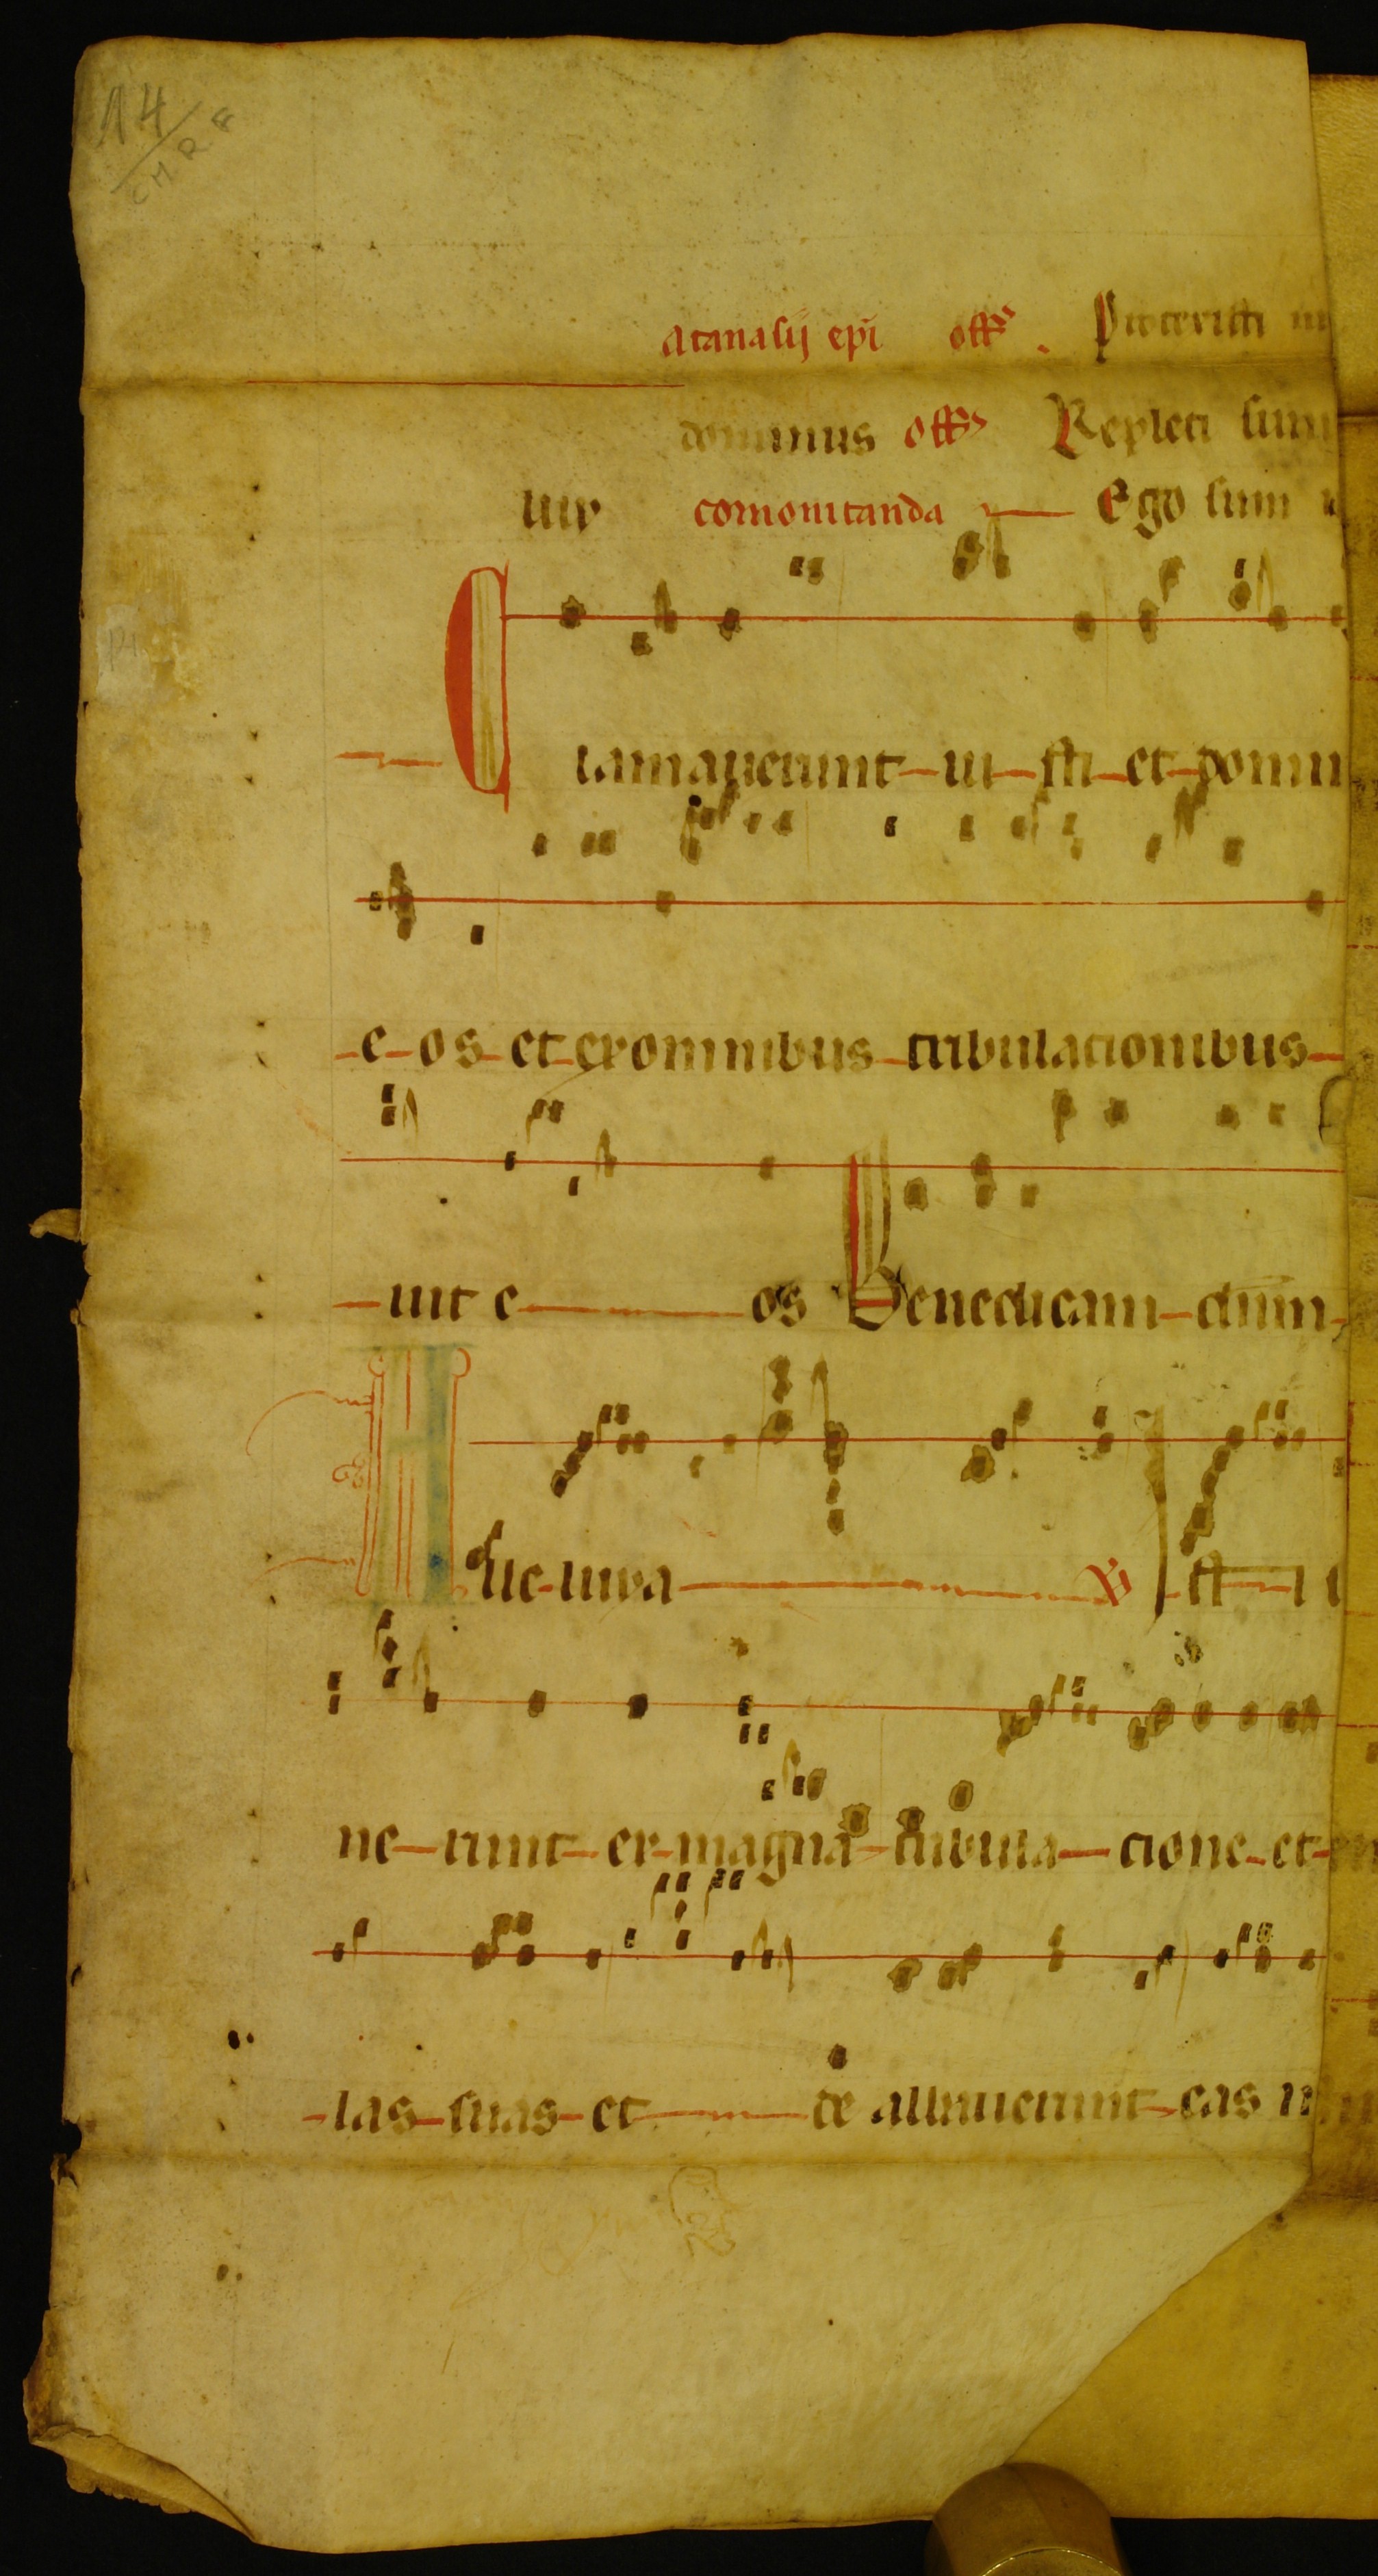 14
CMRF
Atanasij epi off. Protexisti
dominus off Repleti sum
luy comonitanda Ego sum
Clamaverunt iu sti et domin
e os et ex omnibus tribulacionibus
uit e os Benedicam dum
Alle luya V Isti
ne runt ex magna tribula cione et
las suas et de albaverunt eas